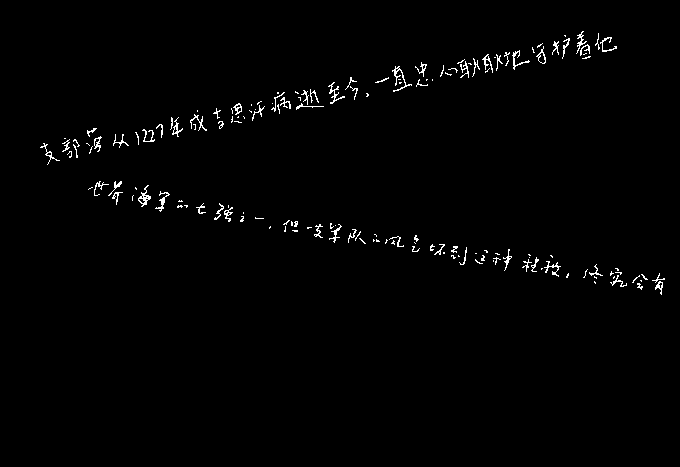 支部落从1227年成吉思汗病逝至今，一直忠心耿耿地守护着他
世界海军的七强之一，但一支军队的风气坏到这种程度，终究会有